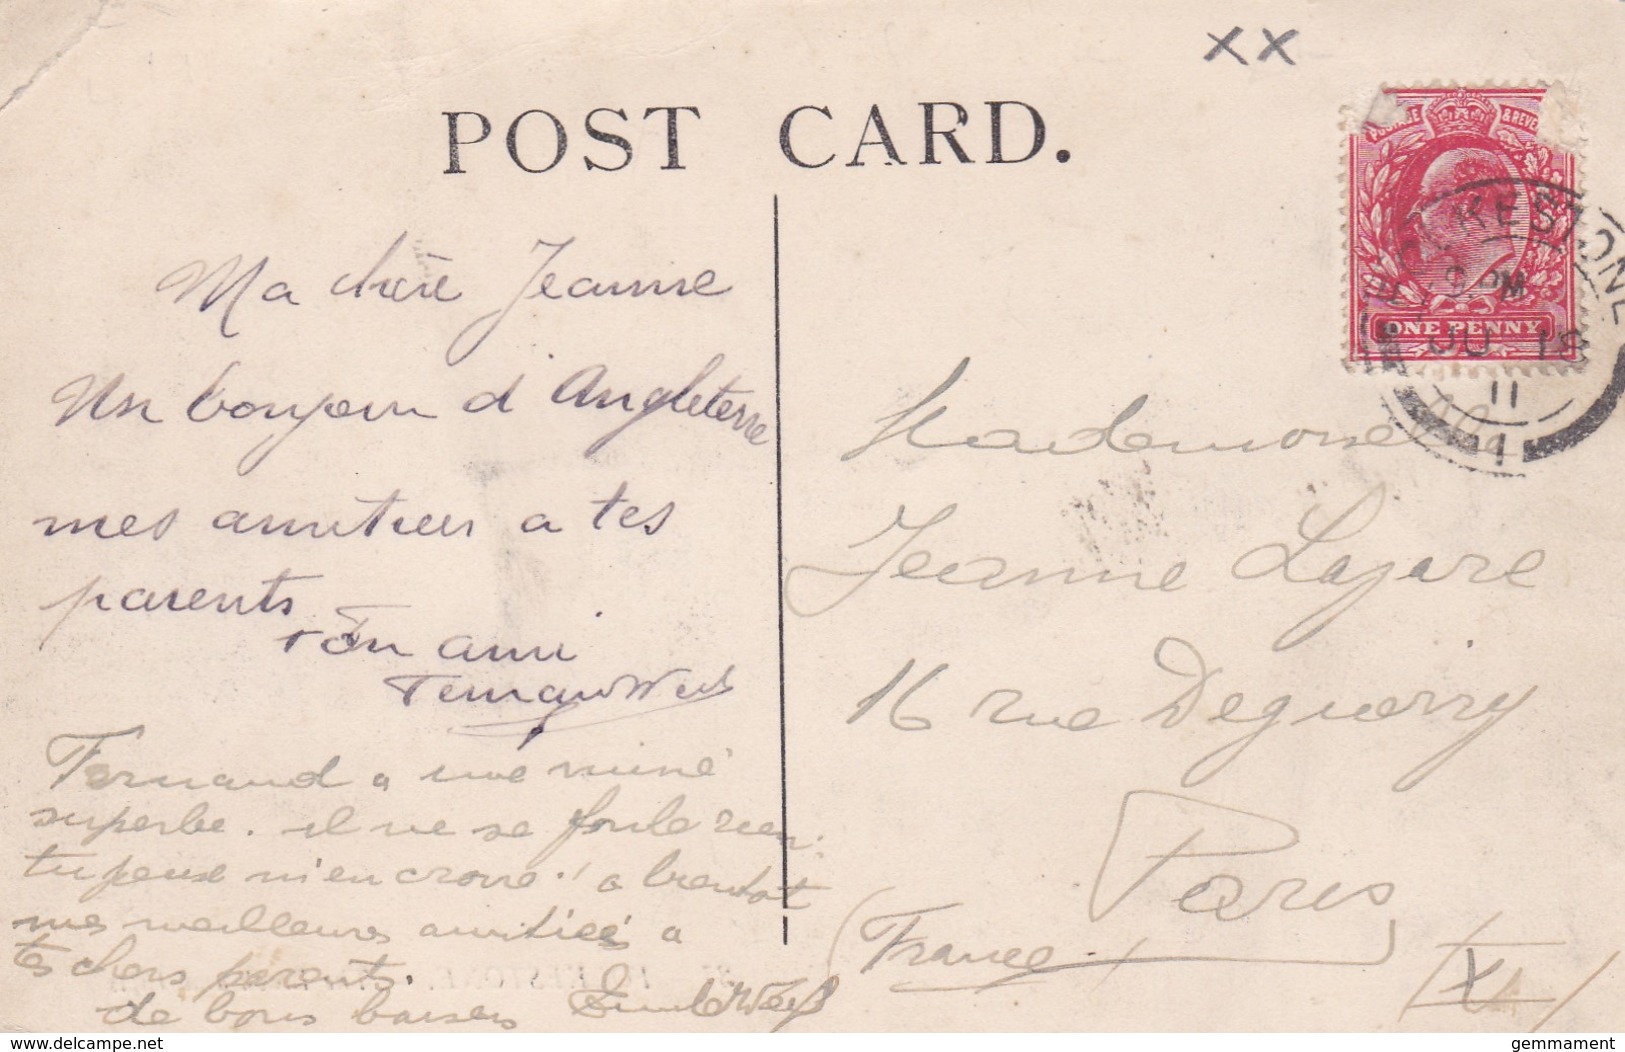 XX
POST CARD.
POSTAGE & REVE
ONE PENNY
FOLKESTONE
9 PM
JU 18
11
1
Ma chère Jeanne
Un bonjour d'Angleterre
mes amitiers a tes
parents
Ton ami
Fernand Weil
Fernand a une mine
superbe. il ne se foule rien.
tu peux m'en croire! a bientot
mes meilleures amitiés a
tes chers parents.
de bons baisers Emile Weiss
Mademoiselle
Jeanne Lazare
16 rue Deguerry
Paris
France
XI
FOLKESTONE.
delcampe.net
gemmament